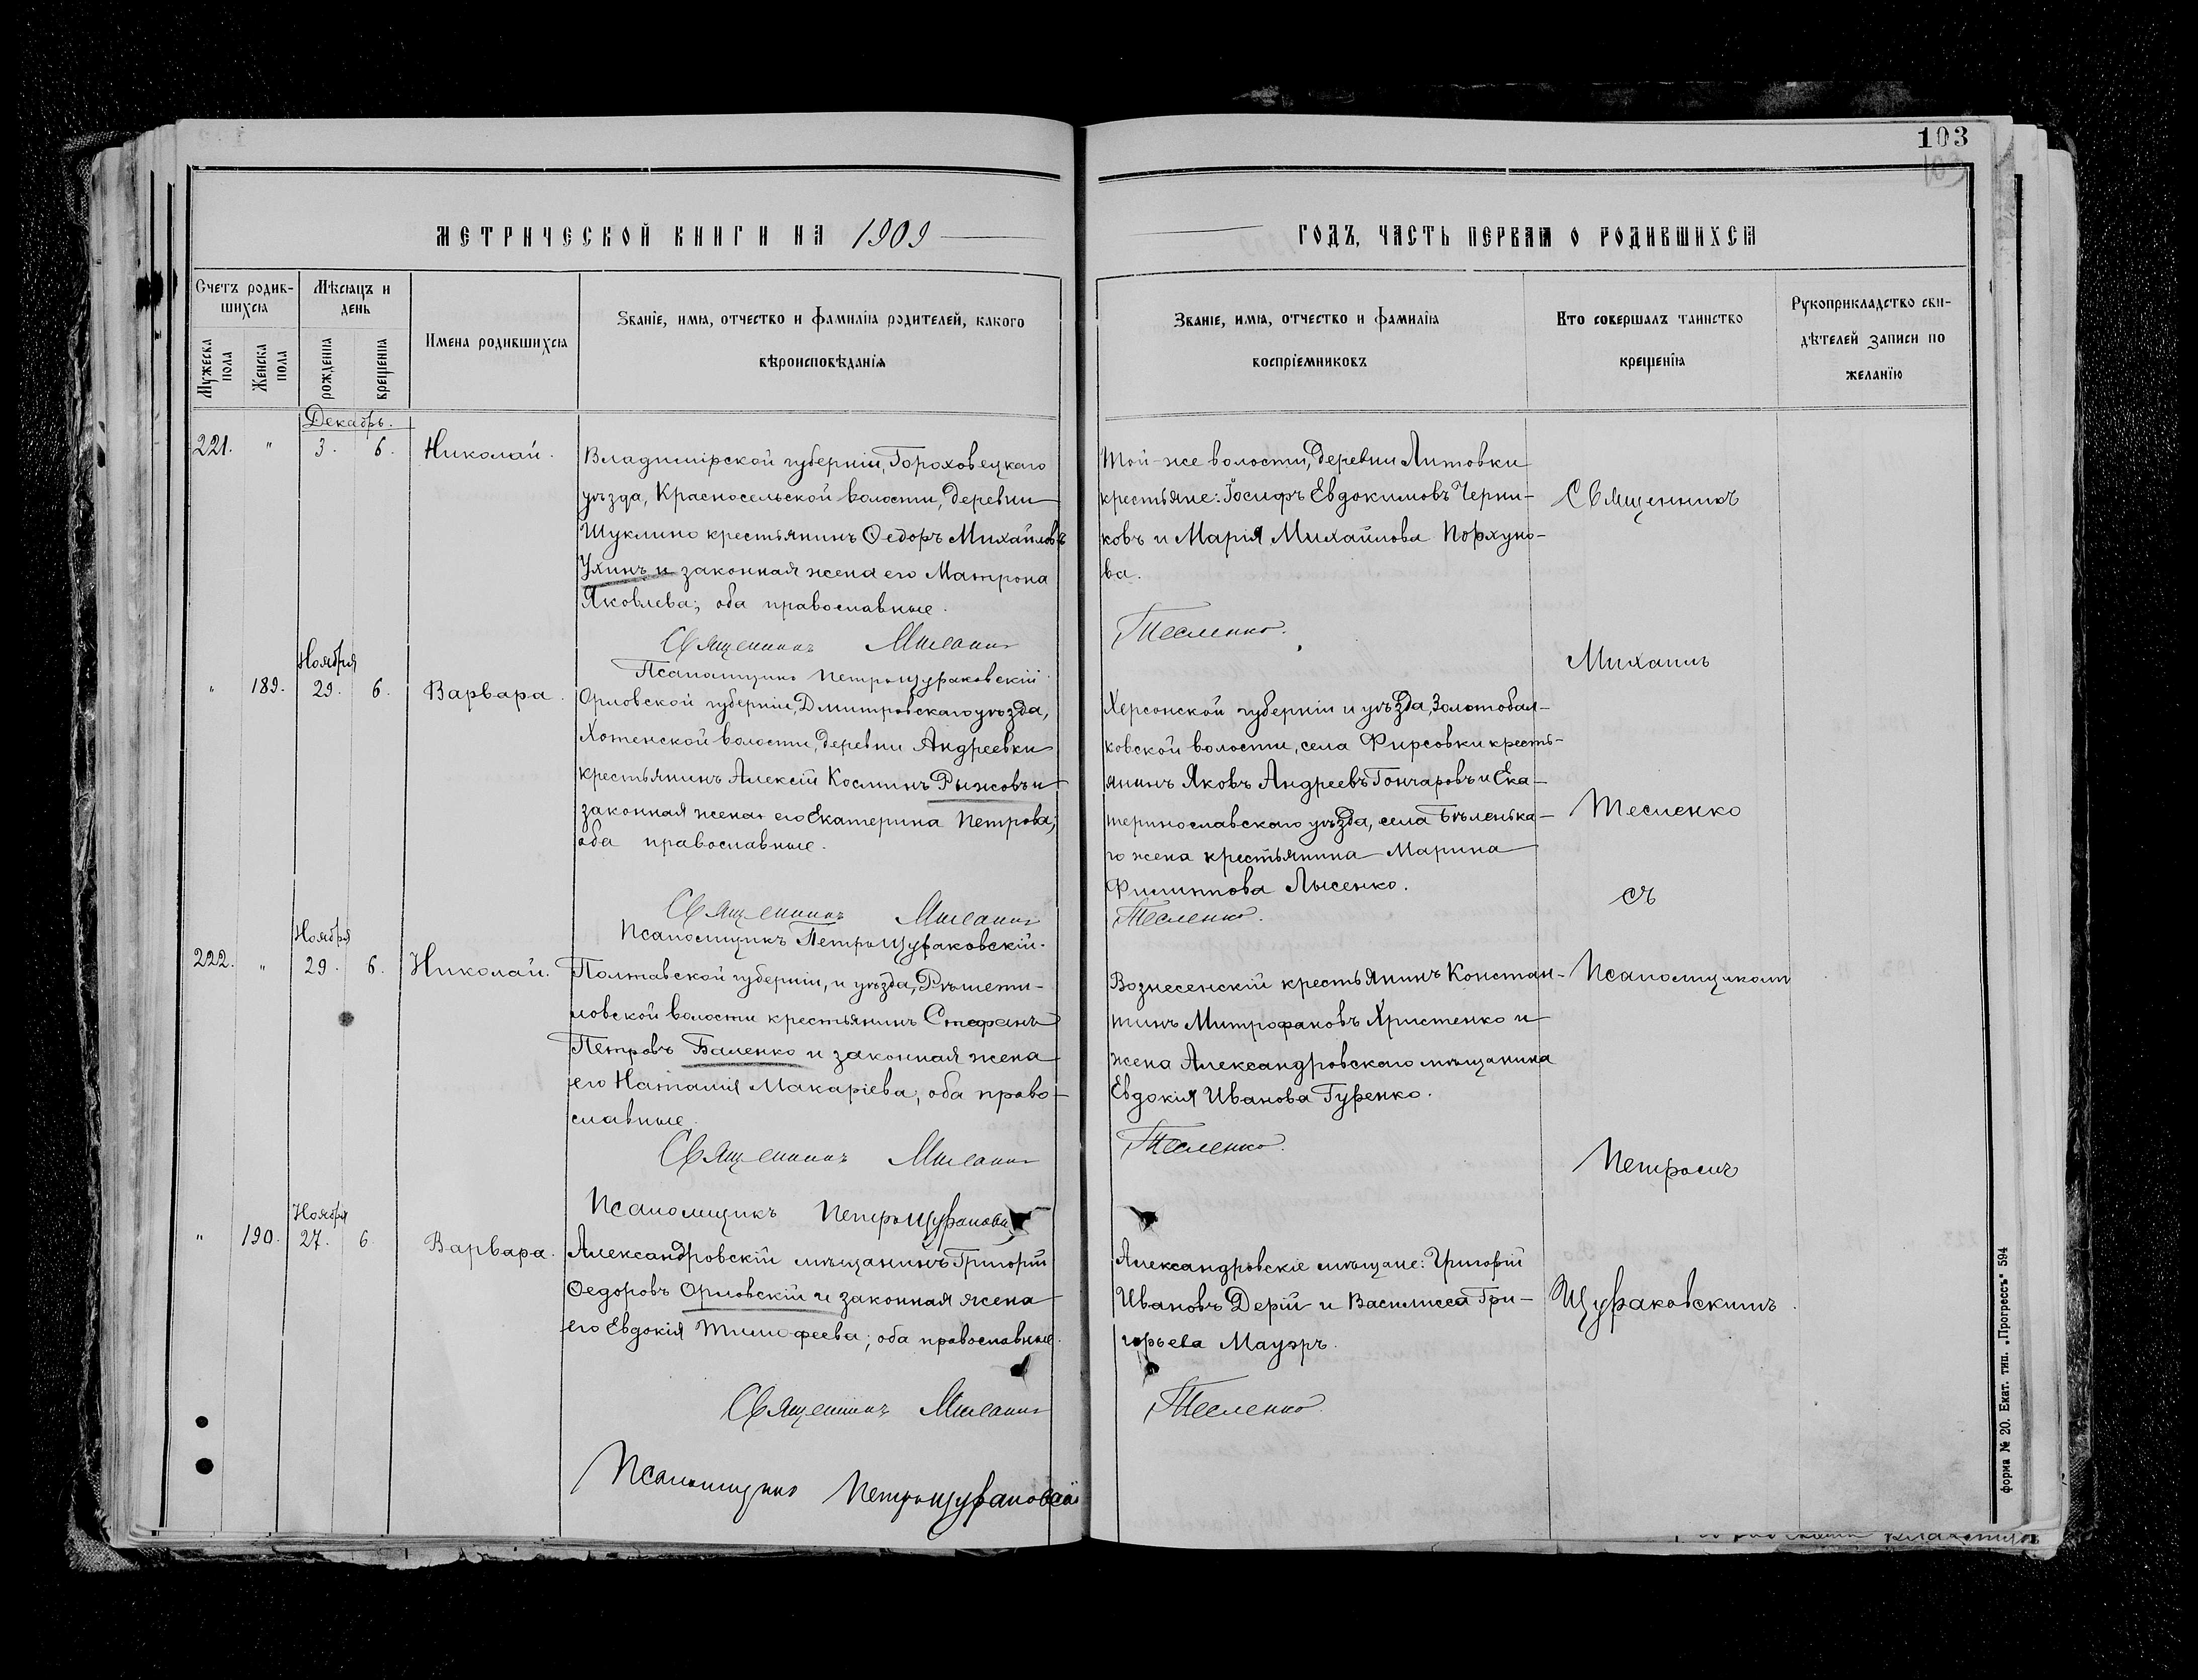 103
103
МЕТРИЧЕСКОЙ КНИГИ НА 1909
ГОДЪ, ЧАСТЬ ПЕРВАЯ О РОДИВШИХСЯ
Счетъ родив-
шихся
Мужеска пола
Женска пола
Мѣсяцъ и
день
рожденія
крещенія
Имена родившихся
Званіе, имя, отчество и фамилія родителей, какого
вѣроисповѣданія
Званіе, имя, отчество и фамилія
воспріемниковъ
Кто совершалъ таинство
крещенія
Рукоприкладство сви-
дѣтелей записи по
желанію
Декабрь.
221. " 3. 6. Николай.
Владимірской губерніи, Гороховецкаго
уѣзда, Красносельской волости, деревни
Шуклино крестьянинъ Ѳедоръ Михайловъ
Ухинъ и законная жена его Матрона
Яковлева; оба православные.
Священникъ М. Тесленко.
Псаломщикъ Петръ Щураковскій
Той-же волости, деревни Литовки
крестьяне: Іосифъ Евдокимовъ Черни-
ковъ и Марія Михайлова Порхуно-
ва.
Ноября
" 189. 29. 6. Варвара.
Орловской губерніи, Дмитровскаго уѣзда,
Хотенской волости, деревни Андреевки
крестьянинъ Алексій Косминъ Рыжовъ и
законная жена его Екатерина Петрова;
оба православные.
Священникъ М. Тесленко.
Псаломщикъ Петръ Щураковскій.
Херсонской губерніи и уѣзда, Золотобал-
ковской волости, села Фирсовки кресть-
янинъ Яковъ Андреевъ Гончаровъ и Ека-
теринославскаго уѣзда, села Бѣленька-
го жена крестьянина Марина
Филиппова Лысенко.
Ноября
222. " 29. 6. Николай.
Полтавской губерніи, и уѣзда, Рѣшети-
ловской волости крестьянинъ Стефанъ
Петровъ Баленко и законная жена
его Наталія Макаріева; оба право-
славные.
Священникъ М. Тесленко.
Псаломщикъ Петръ Щураковскій
Вознесенскій крестьянинъ Констан-
тинъ Митрофановъ Христенко и
жена Александровскаго мѣщанина
Евдокія Иванова Гуренко.
Ноября
" 190. 27. 6. Варвара.
Александровскій мѣщанинъ Григорій
Ѳедоровъ Орловскій и законная жена
его Евдокія Тимофеева; оба православные.
Священникъ М. Тесленко.
Псаломщикъ Петръ Щураковскій
Александровскіе мѣщане: Григорій
Ивановъ Дерій и Василисса Гри-
горьева Мауэръ.
Священникъ
Михаилъ
Тесленко
съ
Псаломщикомъ
Петромъ
Щураковскимъ.
форма № 20. Екат. тип. „Прогрессъ" 594